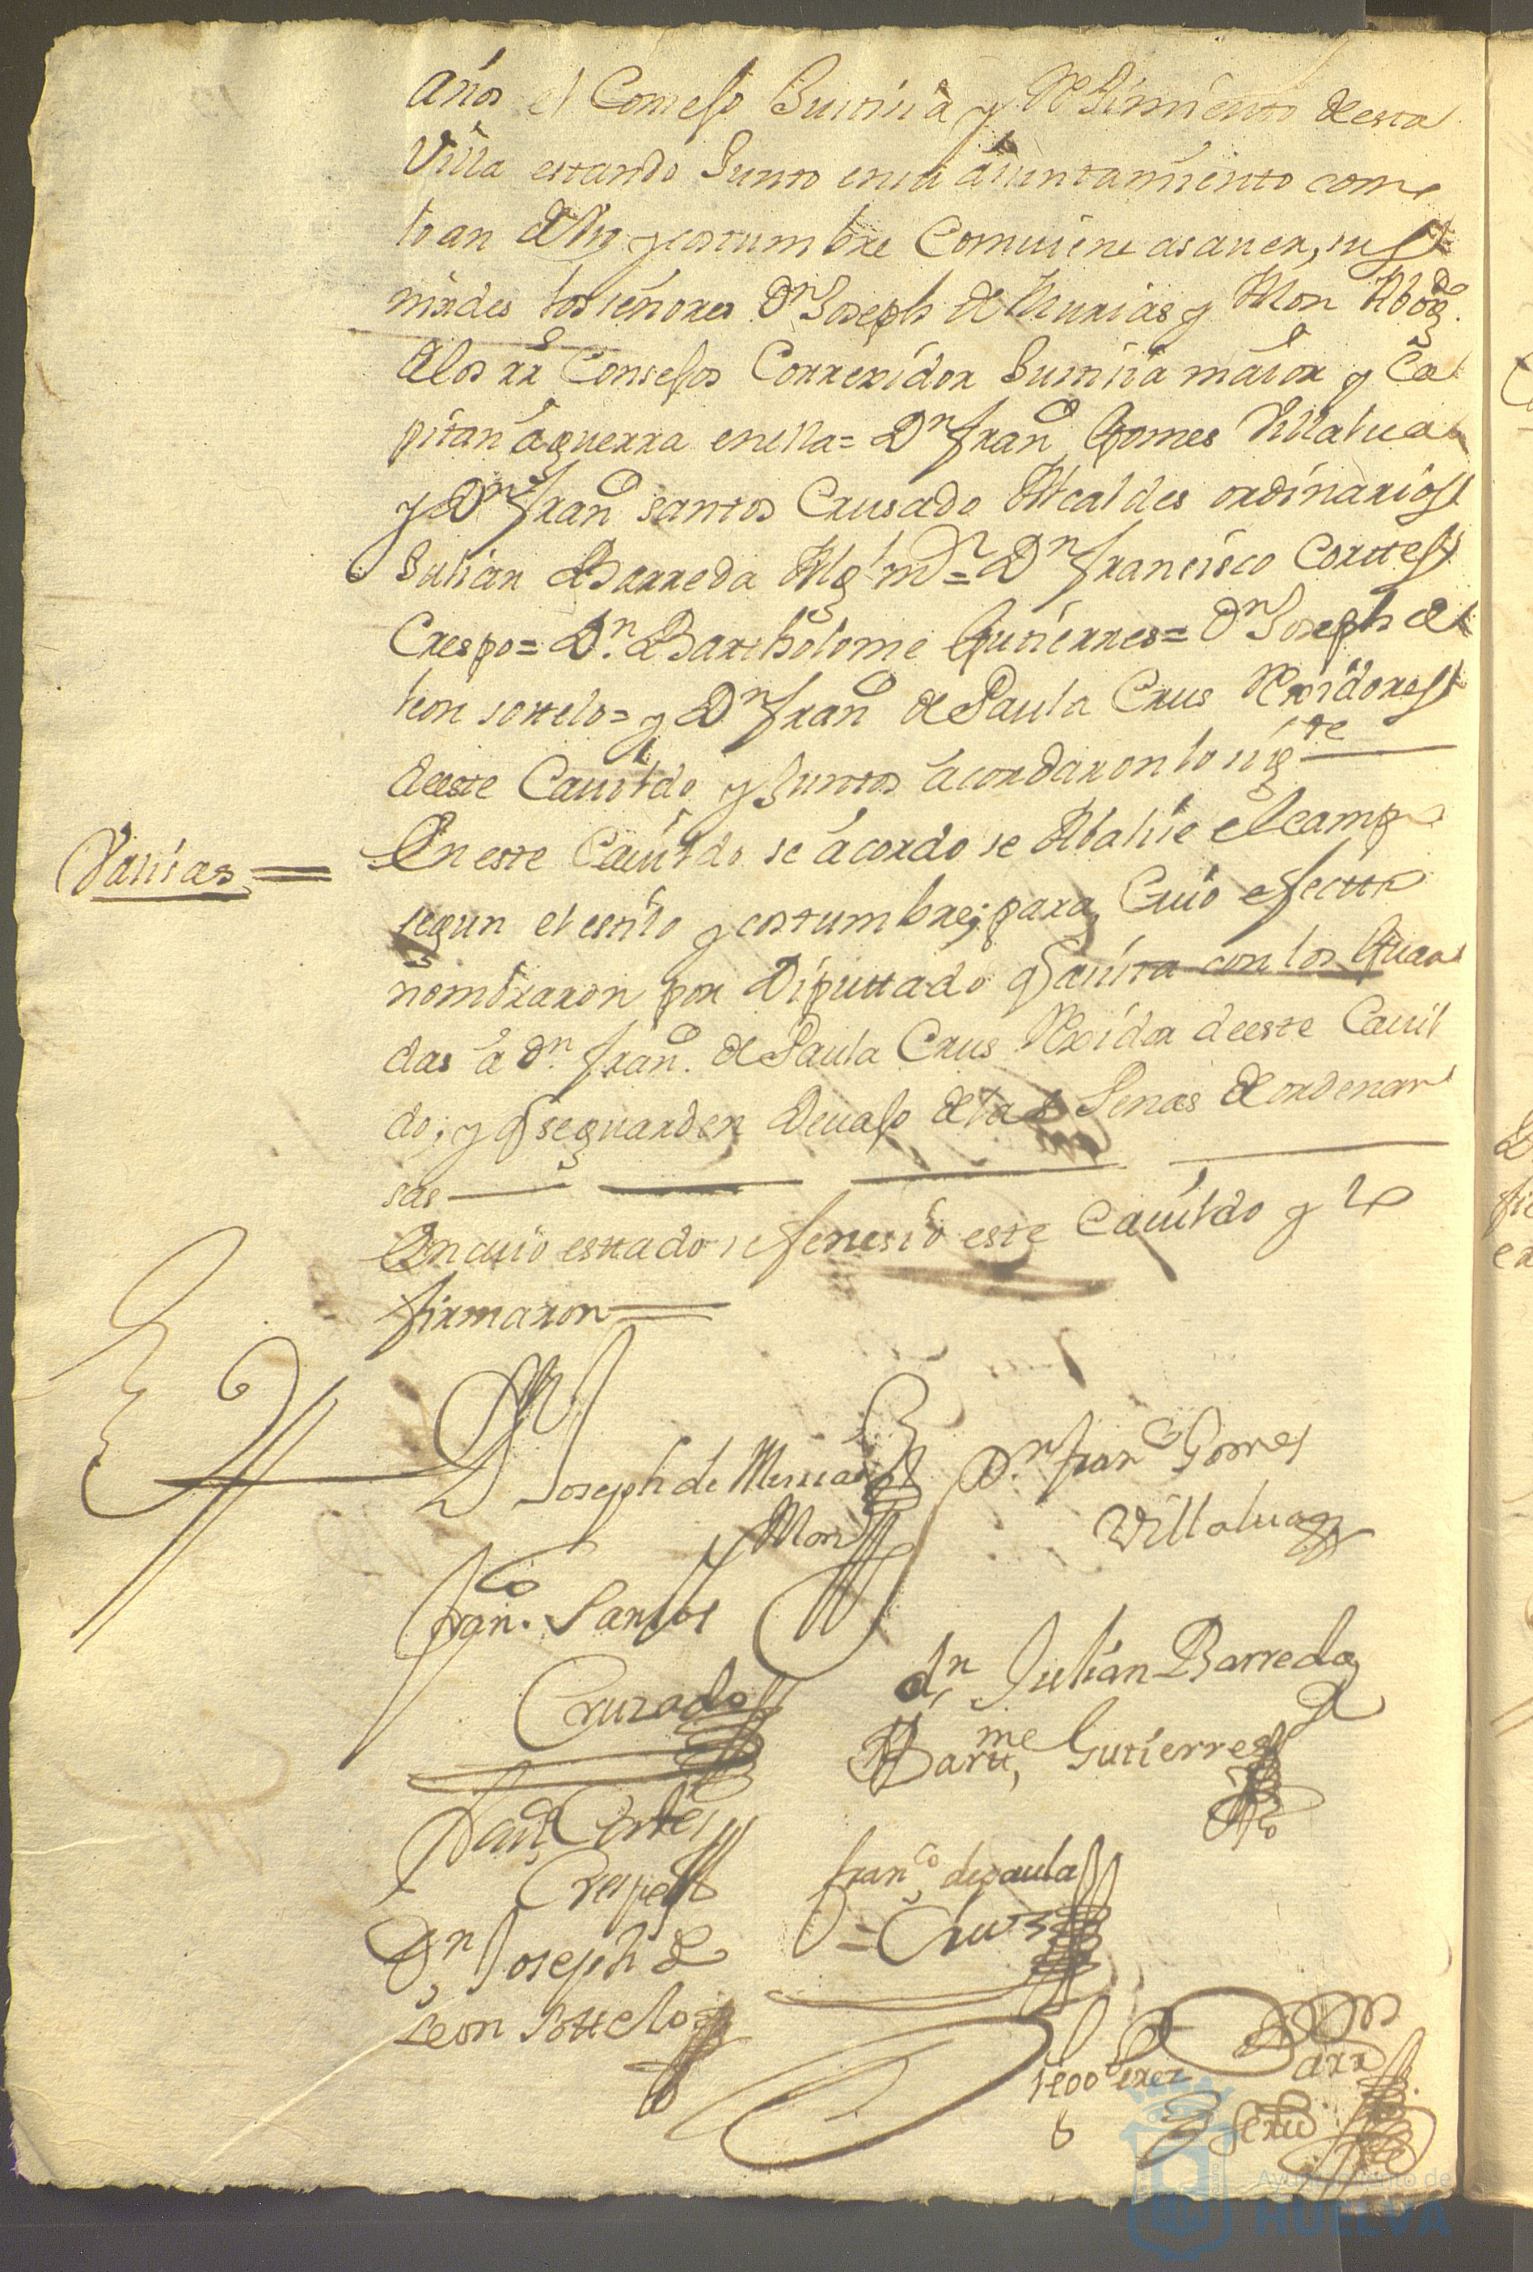 años el Consejo Justicia y Reximiento desta
Villa estando Junto en su aiuntamiento como
lo an de Uso y costumbre Comuiene asauer, sus
mrdes los señores Dn Joseph de Murias y Mon Abogdo
de los rs Consejos Correxidor Justicia maior y Ca
pitan á guerra en ella = Dn Franco Gomes Villalua
y Dn Franco santos Crusado Alcaldes ordinarios
Julian de Barreda Alg. mor = Dn Francisco Corttes
Crespo = Dn. Bartholome Gutierres = Dn Joseph de
leon sottelo = y Dn Franco de Paula Crus Rexidores
deeste Cauildo y Juntos acordaron lo sigte
En este Cauildo se ácordo se el camp
segun el estilo y costumbre; para Cuio efectto
nombraron por Diputtado q Salira con los Guar
das á Dn. Franco. de Paula Crus Rexidor deeste Cauil
do; y q se guarden Deuajo de las Penas de ordenan
sas
En cuio esttado se fenesio este Cauildo y lo
firmaron
Dn Joseph de Murias
y Mon
Dn. Franco Gomes
Villalua
Franco. Santos
Cruzado
dn Julian Barreda
Bartme Gutierres
Franco Cortes
Crespo
franco de paula
= Cruz
Dn Joseph de
Leon Sottelo
Ayuntamiento de
HUELVA